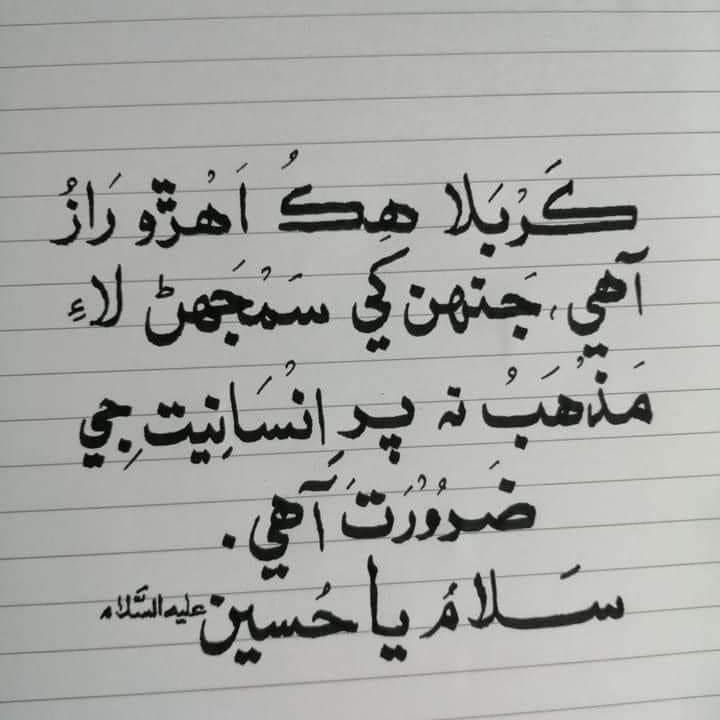 ڪَرْبَلا هِڪُ اَهْڙو رَازُ
آهي، جَنهن کي سَمْجَهڻ لاءِ
مَذْهَبُ نہ پر اِنْسَانِيت جِي
ضَرُوْرَتَ آهي.
سَلامُ يا حُسين عليه السَّلام